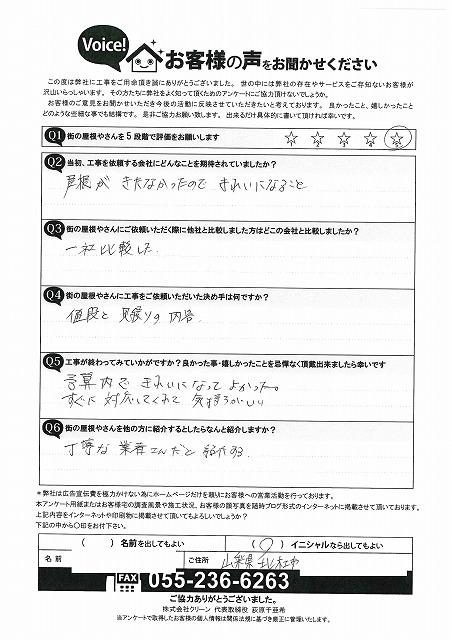 Voice!
お客様の声をお聞かせください
この度は弊社に工事をご用命頂き誠にありがとうございました。世の中には弊社の存在やサービスをご存知ないお客様が
沢山いらっしゃいます。その方たちに弊社をよく知って頂くためのアンケートにご協力頂けないでしょうか。
お客様のご意見をお聞かせいただき今後の活動に反映させていただきたいと考えております。良かったこと、嬉しかったこと
どのような些細な事でも結構です。是非ご協力お願い致します。出来るだけ具体的に書いて頂ければ幸いです。
Q1 街の屋根やさんを5段階で評価をお願いします ☆ ☆ ☆ ☆ ☆
Q2 当初、工事を依頼する会社にどんなことを期待されていましたか?
屋根が きたなかったので きれいになること
Q3 街の屋根やさんにご依頼いただく際に他社と比較しました方はどこの会社と比較しましたか?
一社比較した.
Q4 街の屋根やさんに工事をご依頼いただいた決め手は何ですか?
値段と 見積りの内容.
Q5 工事が終わってみていかがですか?良かった事・嬉しかったことを忌憚なく頂戴出来ましたら幸いです
予算内で きれいになって よかった。
すぐに 対応してくれて 気持ちがいい
Q6 街の屋根やさんを他の方に紹介するとしたらなんと紹介しますか?
丁寧な 業者さんだと 紹介する.
*弊社は広告宣伝費を極力かけない為にホームページだけを頼りにお客様への営業活動を行っております。
本アンケート用紙またはお客様宅の調査風景や施工状況、お客様の顔写真を随時ブログ形式のインターネットに掲載させて頂いております。
上記内容をインターネットや印刷物に掲載させて頂いてもよろしいでしょうか?
下記の中から〇印をお付け下さい。
( ) 名前を出してもよい (〇) イニシャルなら出してもよい
名前 ご住所 山梨県
FAX 055-236-6263
ご協力ありがとうございました。
株式会社クリーン 代表取締役 萩原千亜希
当アンケートで取得したお客様の個人情報は関係法規に基づき厳正に管理いたします。